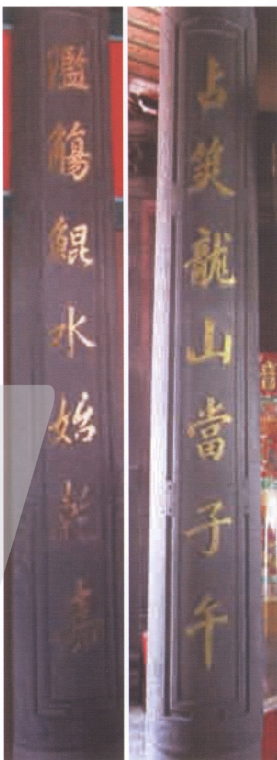 占筴龍山當子午
濫觴鯤水始乾嘉